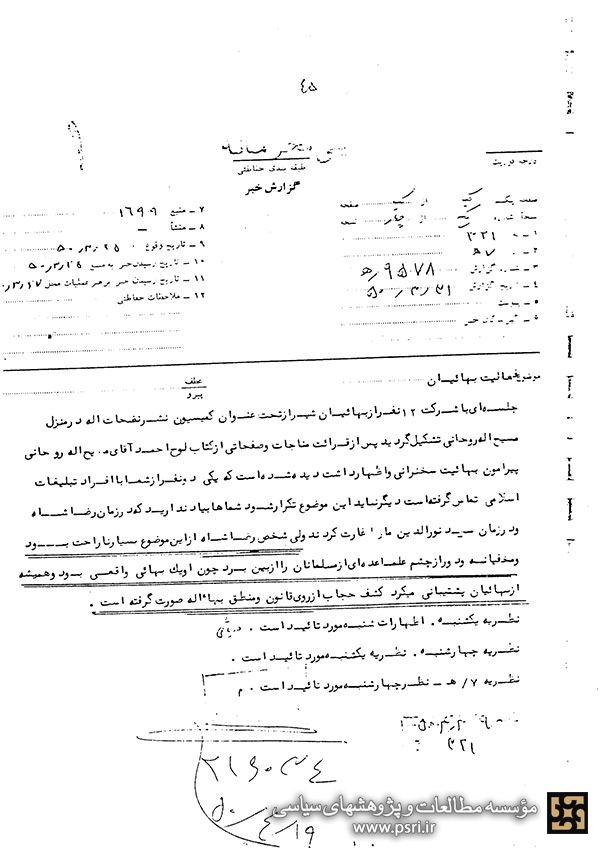 ۴۵
خیلی محرمانه
طبقه بندی حفاظتی
گزارش خبر
درجه فوریت
صفحه یک از یک صفحه
نسخه شماره یک از چهار نسخه
۱ - به ۳۲۱
۲ - از ۷ه
۳ - شماره گزارش ۹۵۷۸/ه
۴ - تاریخ گزارش ۵۰/۳/۳۱
۵ - پیوست
۶ - گیرندگان خبر
۷ - منبع ۱۶۹۰۹
۸ - منشأ -
۹ - تاریخ وقوع ۵۰/۳/۲۵
۱۰ - تاریخ رسیدن خبر به منبع ۵۰/۳/۲۵
۱۱ - تاریخ رسیدن خبر به رهبر عملیات محل ۵۰/۳/۲۷
۱۲ - ملاحظات حفاظتی
موضوع فعالیت بهائیان
عطف
پیرو
جلسه‌ای با شرکت ۱۲ نفر از بهائیان شیراز تحت عنوان کمیسیون نشر نفحات اله در منزل
مسیح اله روحانی تشکیل گردید پس از قرائت مناجات و صفحاتی از کتاب لوح احمد آقای مسیح اله روحانی
پیرامون بهائیت سخنرانی و اظهار داشت دیده شده است که یکی دو نفر از شما با افراد تبلیغات
اسلامی تماس گرفته است دیگر نباید این موضوع تکرار شود شماها بیاد ندارید که در زمان رضا شاه
و در زمان سید نورالدین ما را غارت کردند ولی شخص رضا شاه از این موضوع بسیار ناراحت بود
و مخفیانه و دور از چشم علما عده‌ای از مسلمانان را از بین برد چون او یک بهائی واقعی بود و همیشه
از بهائیان پشتیبانی میکرد کشف حجاب از روی قانون و منطق بهاءاله صورت گرفته است .
نظریه یکشنبه . اظهارات شنبه مورد تائید است .
نظریه چهارشنبه . نظریه یکشنبه مورد تائید است .
نظریه ۷/ هـ - نظر چهارشنبه مورد تائید است . م
۳۲۱
۲۱۶۰۳۴
۵۰/۴/۱۹
مؤسسه مطالعات و پژوهشهای سیاسی
www.psri.ir